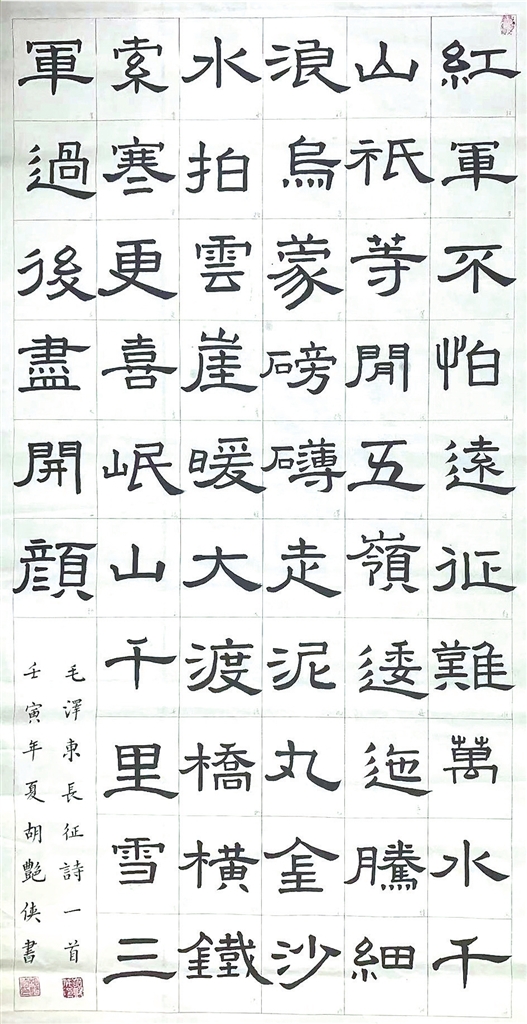 紅軍不怕遠征難萬水千
山祇等閒五嶺逶迤騰細
浪烏蒙磅礴走泥丸金沙
水拍雲崖暖大渡橋橫鐵
索寒更喜岷山千里雪三
軍過後盡開顏
毛澤東長征詩一首
壬寅年夏胡艷俠書